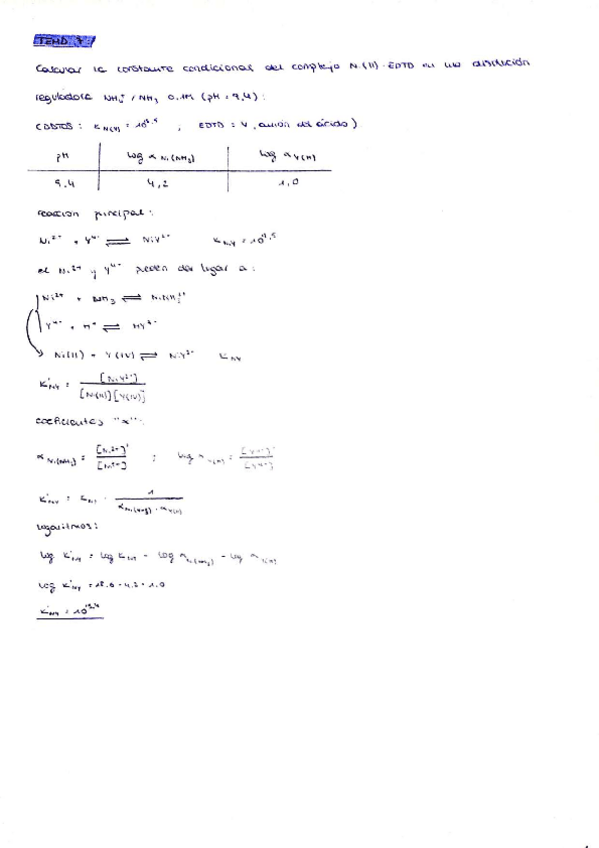 TEMA 7
Calcular la constante condicional del complejo Ni(II)-EDTA en una disolución
reguladora NH₄⁺/NH₃ 0.1M (pH = 9,4):
(DATOS: K Ni(Y) = 10 ; EDTA = Y, anión del ácido)
pH log α Ni(NH₃) log α Y(H)
9,4 4,2 1,0
reacción principal:
Ni²⁺ + Y⁴⁻ ⇌ NiY²⁻ K NiY = 10
el Ni²⁺ y Y⁴⁻ pueden dar lugar a:
Ni²⁺ + NH₃ ⇌
Y⁴⁻ + H⁺ ⇌ HY
Ni(II) + Y(IV) ⇌ NiY²⁻ K NiY
K'NiY = [NiY²⁻] / [Ni(II)][Y(IV)]
coeficientes "α":
α Ni(NH₃) = [Ni²⁺]' / [Ni²⁺] ; log α Y(H) = [Y⁴⁻]' / [Y⁴⁻]
K'NiY = K NiY · 1 / α Ni(NH₃) · α Y(H)
logaritmos:
log K'NiY = log K NiY - log α Ni(NH₃) - log α Y(H)
log K'NiY = 18.6 - 4.2 - 1.0
K'NiY = 10